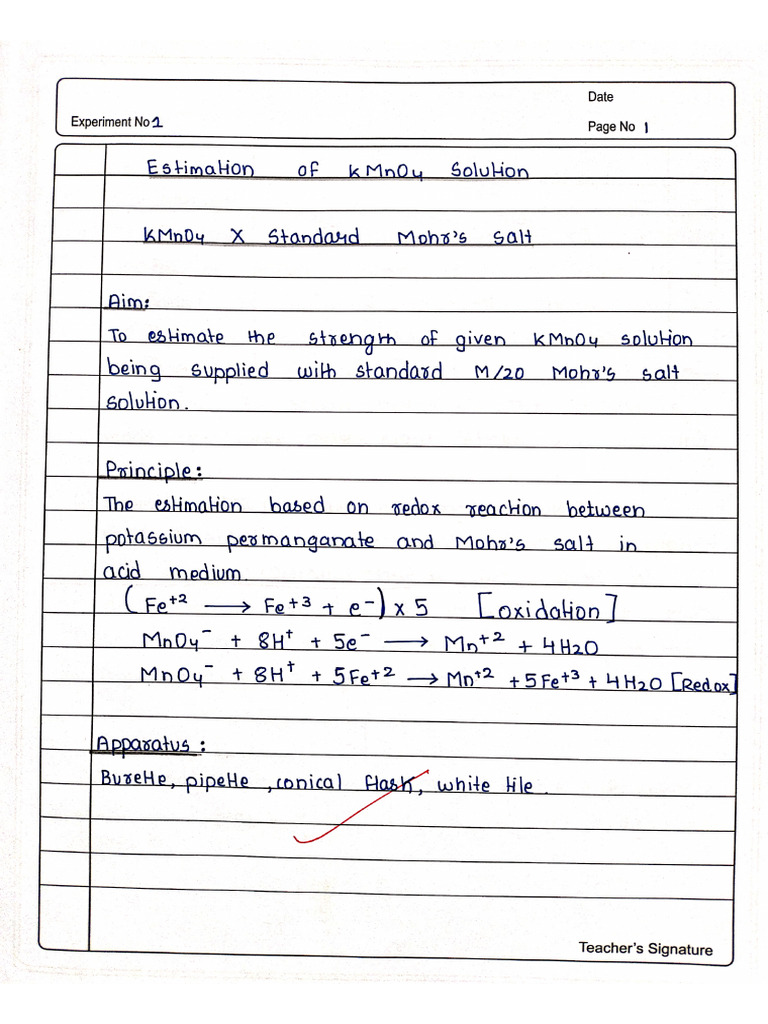 Date
Experiment No 1
Page No 1
Estimation of KMnO4 Solution
KMnO4 X Standard Mohr's salt
Aim:
To estimate the strength of given KMnO4 solution
being supplied with standard M/20 Mohr's salt
solution.
Principle:
The estimation based on redox reaction between
potassium permanganate and Mohr's salt in
acid medium.
(Fe+2 ⟶ Fe+3 + e-) x 5 [oxidation]
MnO4- + 8H+ + 5e- ⟶ Mn+2 + 4H2O
MnO4- + 8H+ + 5Fe+2 ⟶ Mn+2 + 5Fe+3 + 4H2O [Redox]
Apparatus:
Burette, pipette, conical flask, white tile.
Teacher's Signature